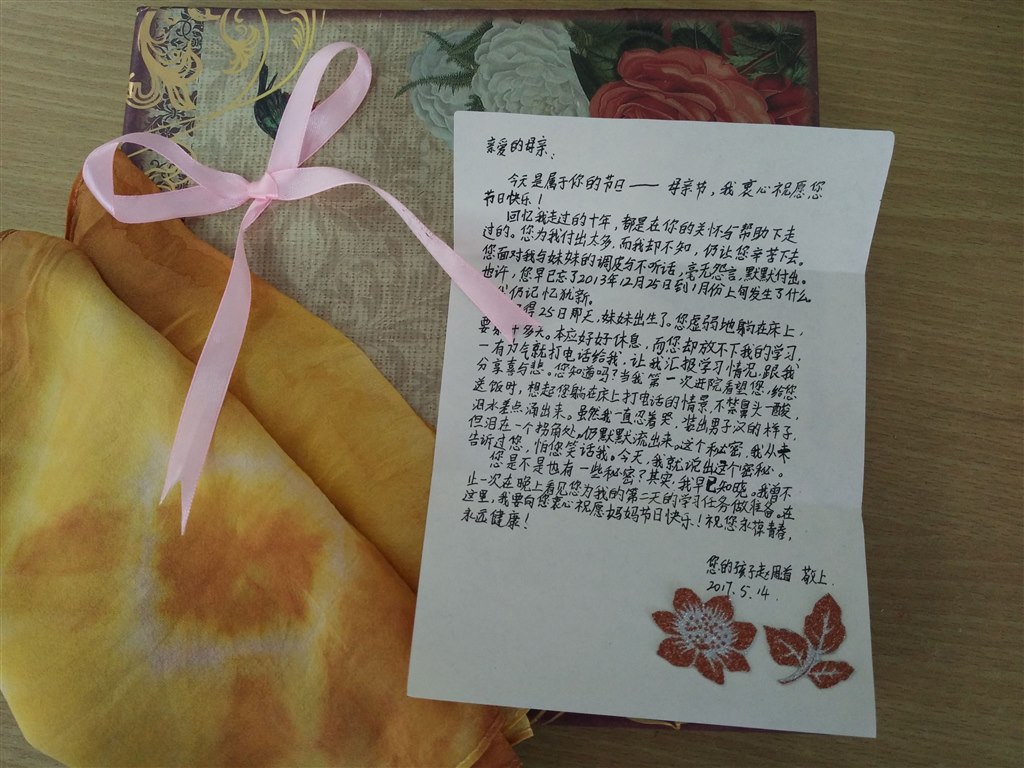 亲爱的母亲:
今天是属于你的节日——母亲节,我衷心祝愿您
节日快乐!
回忆我走过的十年,都是在你的关怀与帮助下走
过的。您为我付出太多,而我却不知,仍让您辛苦下去。
您面对我与妹妹的调皮与不听话,毫无怨言,默默付出。
也许,您早已忘了2013年12月25日到1月份上旬发生了什么
我仍记忆犹新。
得25日那天,妹妹出生了。您虚弱地躺在床上,
要 十多天。本应好好休息,而您却放不下我的学习,
一有力气就打电话给我,让我汇报学习情况,跟我
分享喜与悲。您知道吗?当我第一次进院看望您,给您
送饭时,想起您躺在床上打电话的情景,不禁鼻头一酸,
泪水差点涌出来。虽然我一直忍着哭,装出男子汉的样子,
但泪在一个拐角处,仍默默流出来。这个秘密,我从未
告诉过您,怕您笑话我。今天,我就说出这个密秘。
您是不是也有一些秘密?其实,我早已知晓。我曾不
止一次在晚上看见您为我的第二天的学习任务做准备。在
这里,我要向您衷心祝愿妈妈节日快乐!祝您永葆青春,
永远健康!
您的孩子赵周道 敬上.
2017.5.14.